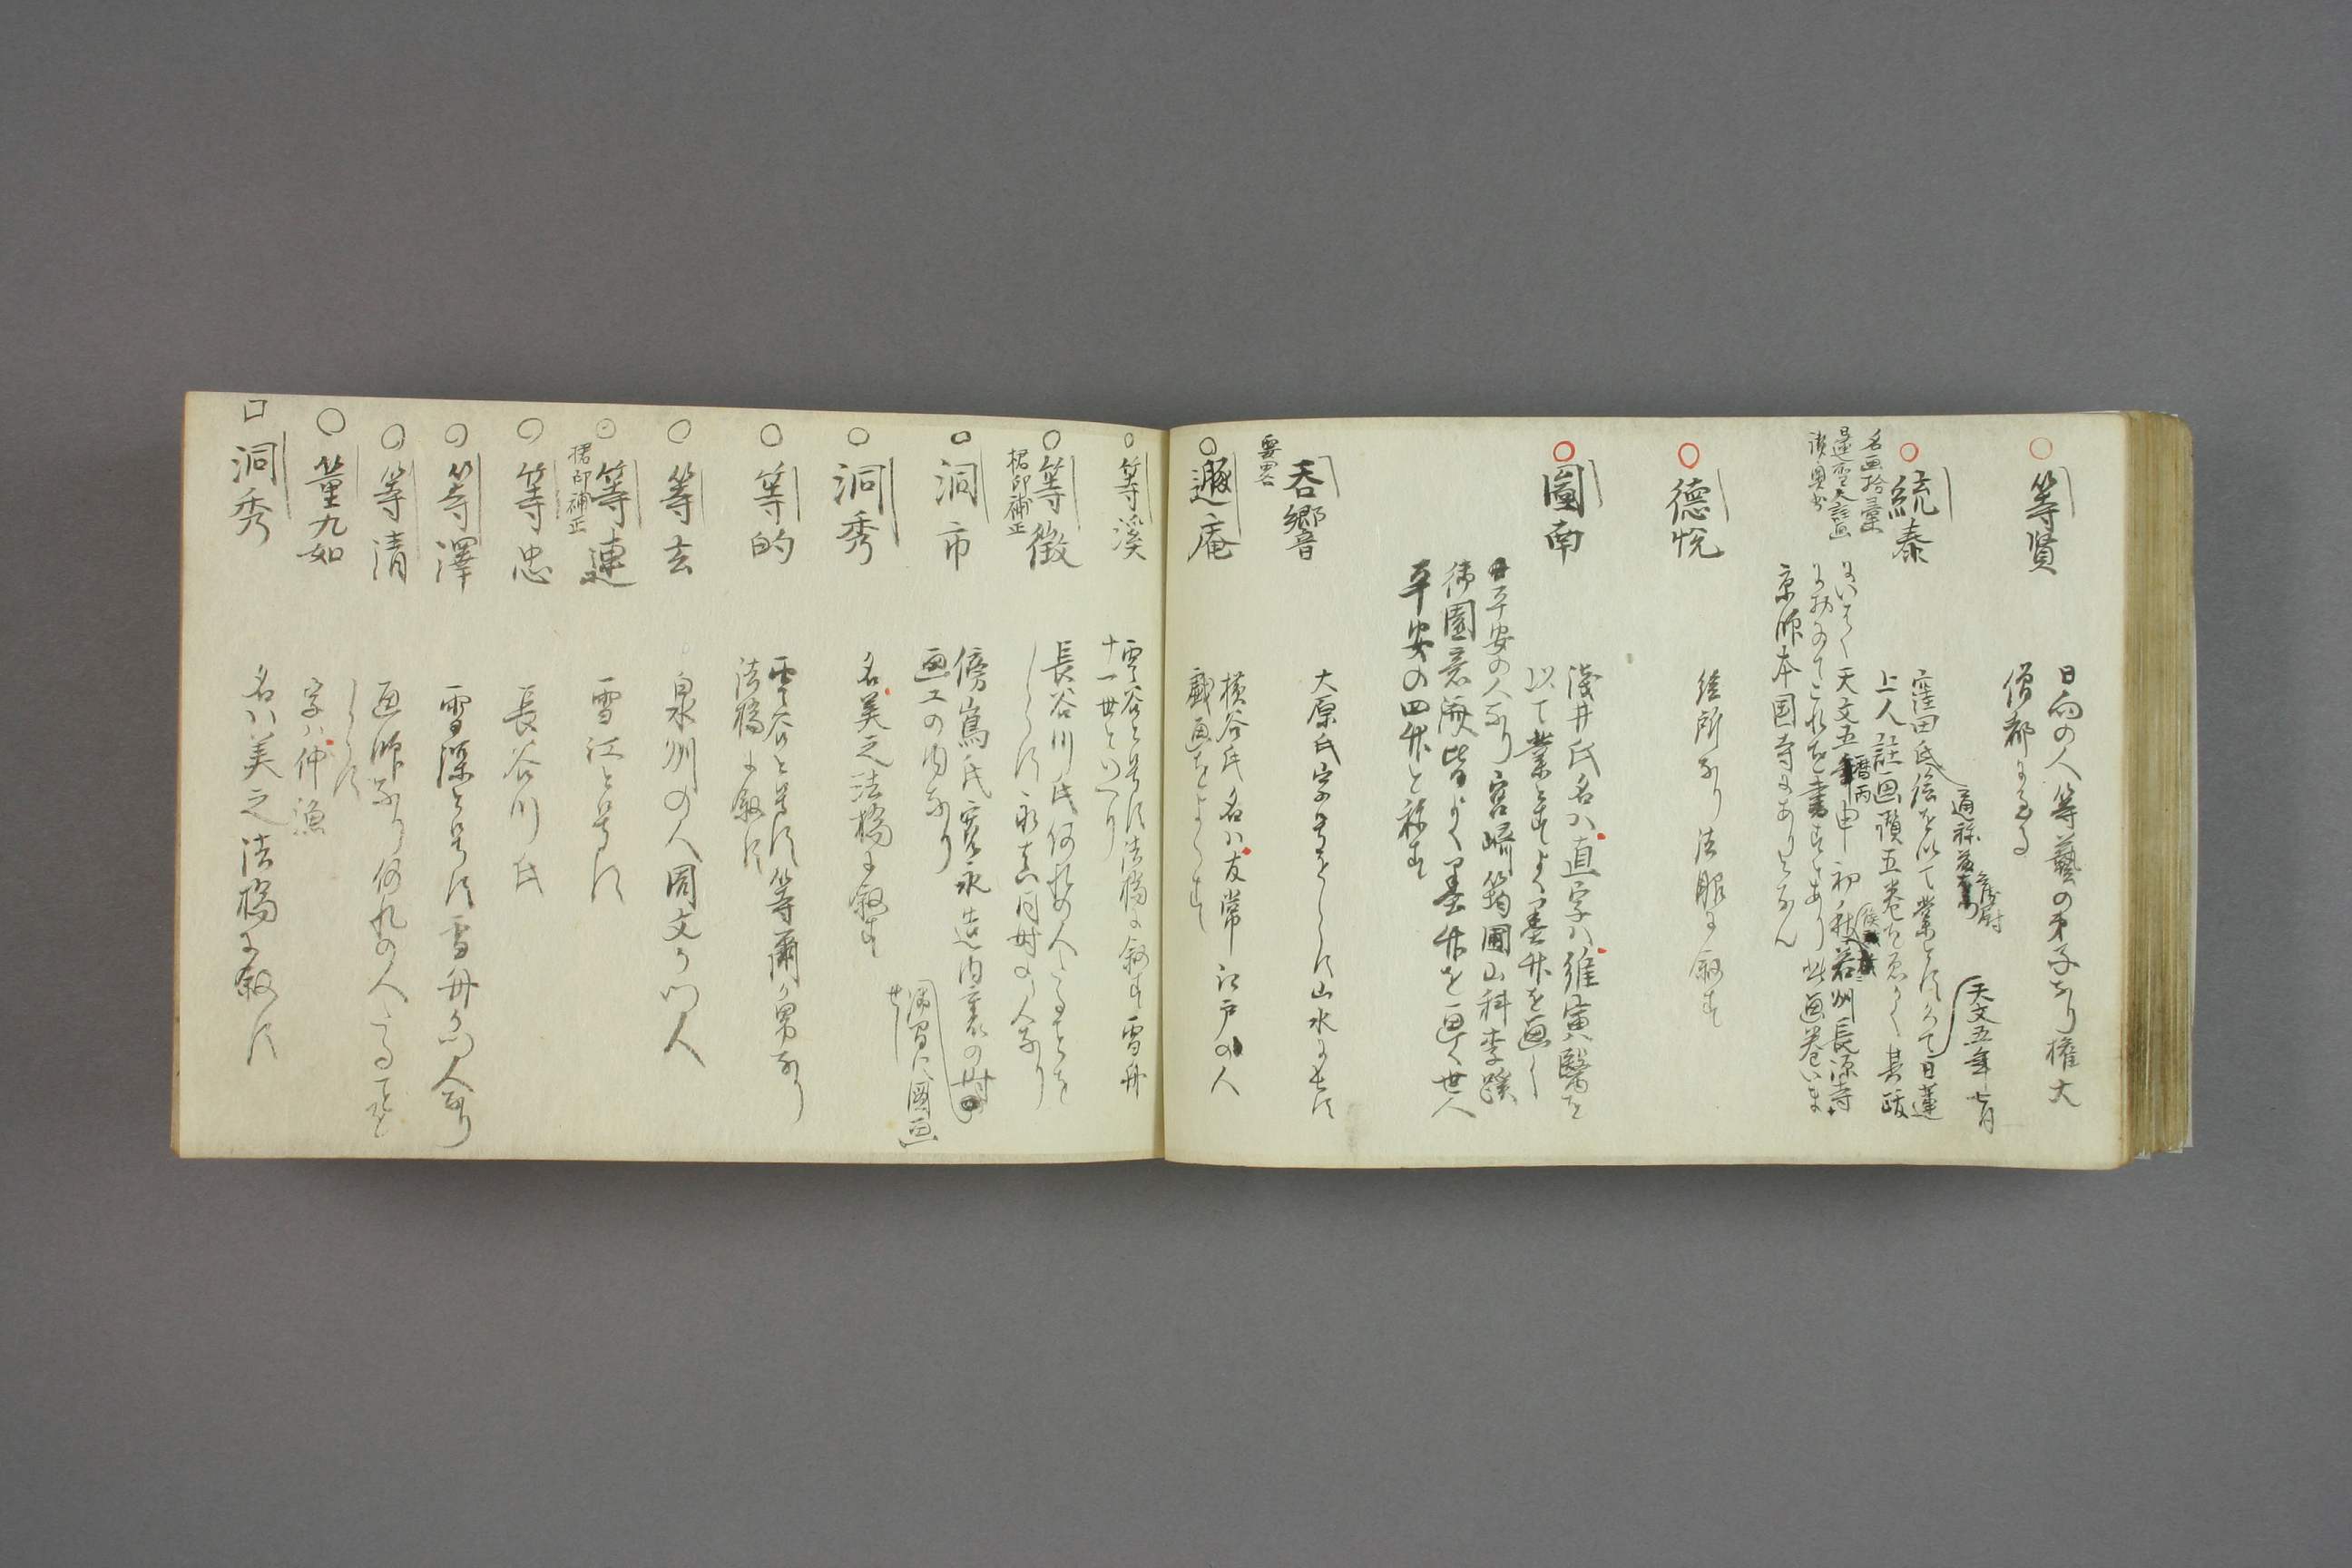 等賢
日向の人等藝の弟子なり權大
僧都になる
統泰
名画拾彙
窪田氏絵を以て業とすかつて日蓮
上人註画讃五巻をゑかく其跋
にいはく天文五暦丙申初秋若州長源寺
におゐてこれを書すとあり此画巻いま
京師本国寺にありとなん
通称
天文五年七月
徳悦
絵所なり法眼に叙す
圖南
淺井氏名ハ直字ハ維寅醫を
以て業とすよく墨竹を画く
平安の人なり宮崎筠圃山科李蹊
御園意齋皆よく墨竹を画く世人
平安の四竹と称す
呑響
要畧
大原氏字号をしらす山水に長す
遯庵
横谷氏名ハ友常江戸の人
戯画をよくす
等溪
雲谷と号す法橋に叙す雪舟
十一世といへり
等徴
梧印補正
長谷川氏何れの人なることを
しらす永真同時の人なり
洞市
傍嶌氏寛永造内裏の時の
画工の内なり
洞秀
名美之法橋に叙す
等的
雲谷と号す等爾か男なり
法橋に叙す
等玄
泉州の人周文か門人
等連
梧印補正
雪江と号す
等忠
長谷川氏
等澤
雪溪と号す雪舟か門人なり
等清
画師なり何れの人なることを
しらす
董九如
字ハ仲漁
洞秀
名ハ美之法橋に叙す